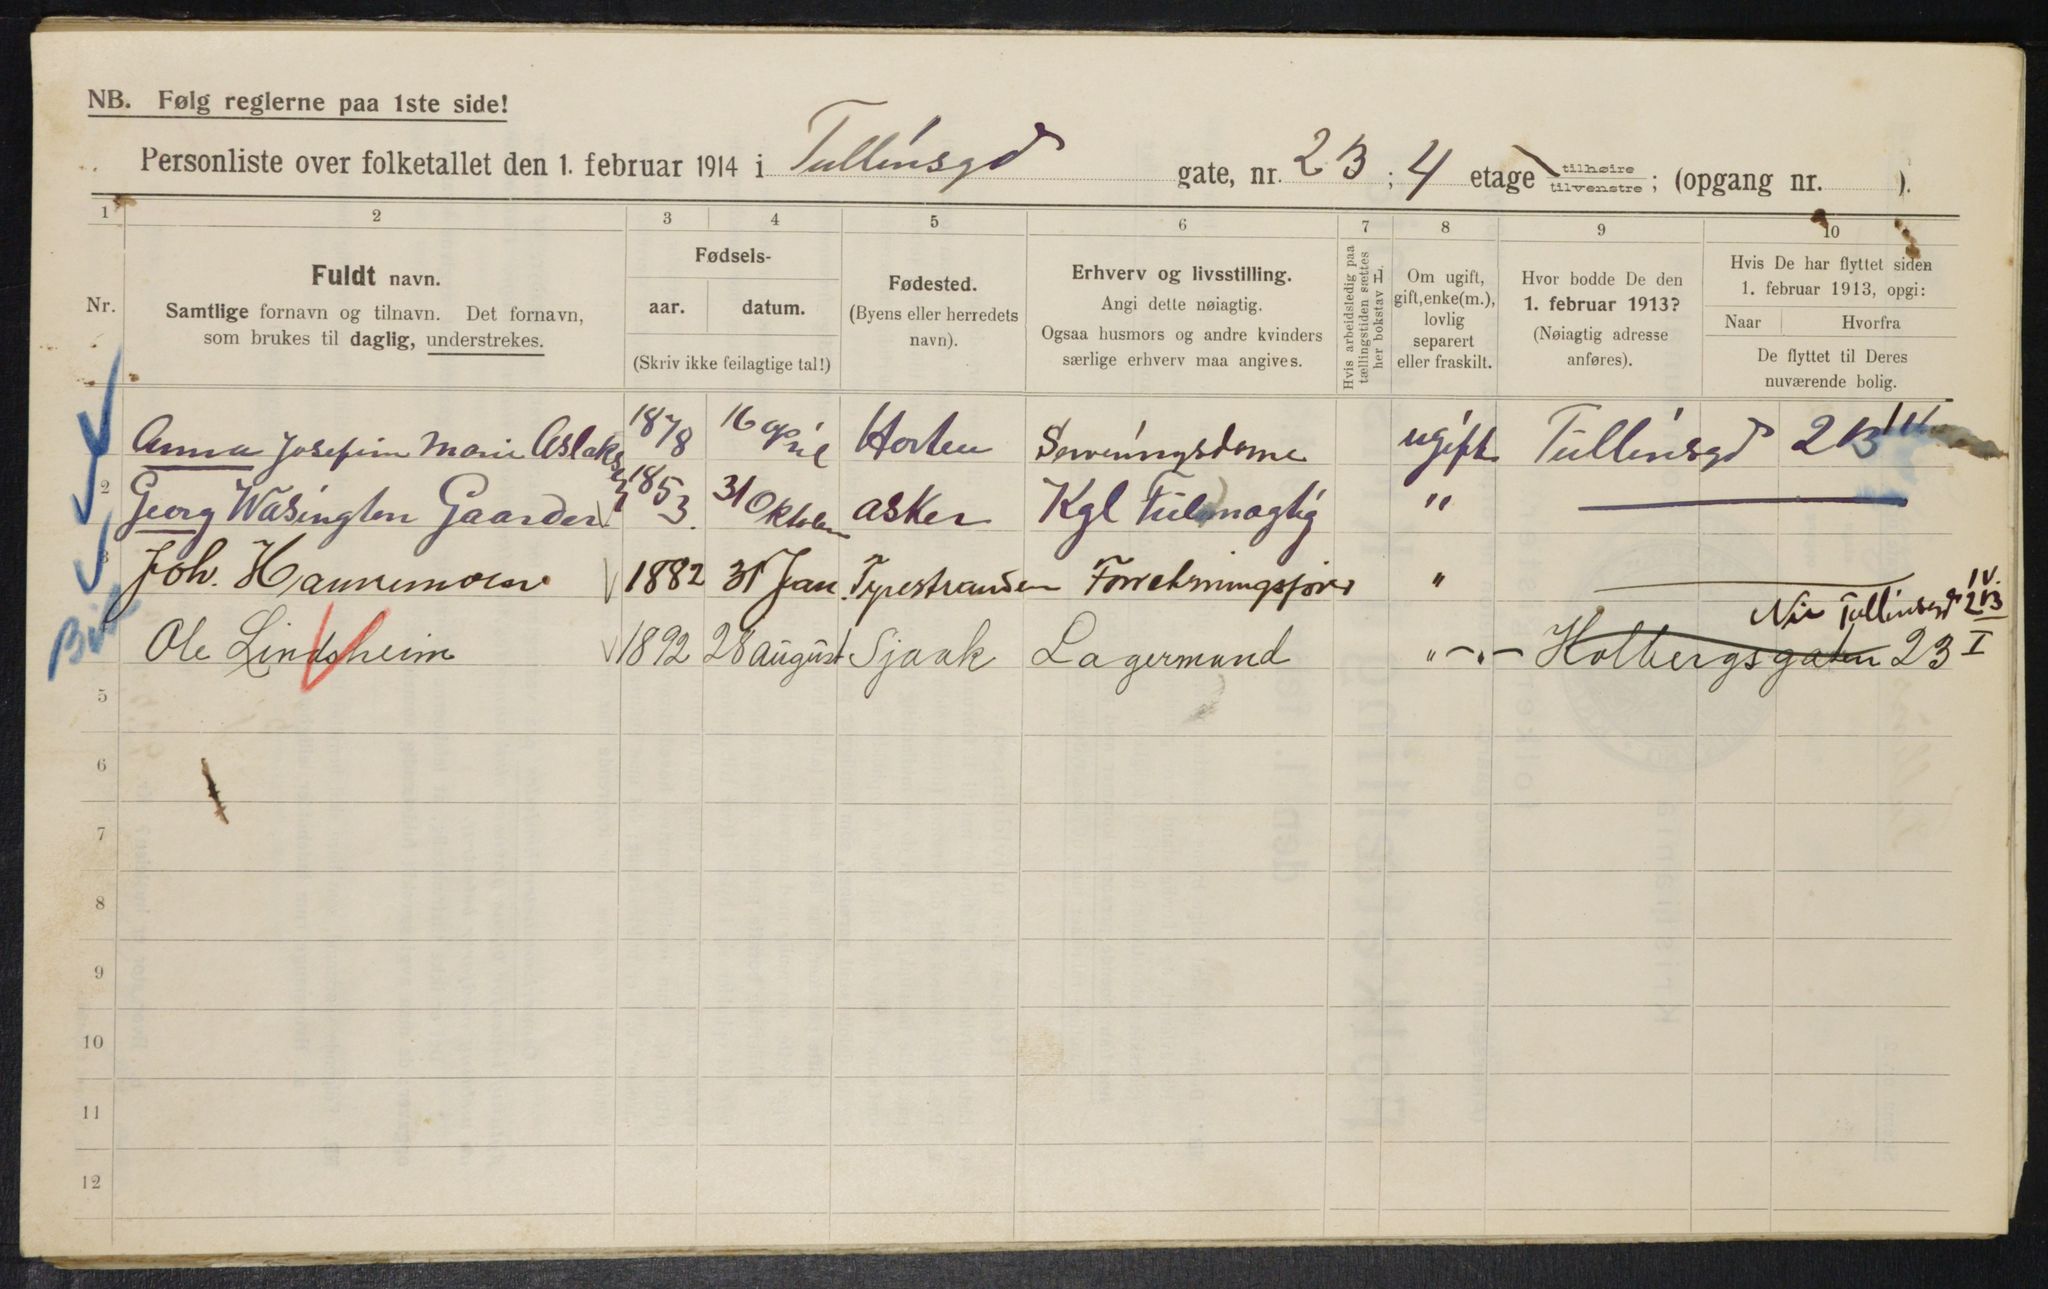 NB. Følg reglerne paa 1ste side!
Personliste over folketallet den 1. februar 1914 i Tullinsgd gate, nr. 23; 4 etage tilhøire tilvenstre; (opgang nr. ).
1 2 3 4 5 6 7 8 9 10
Nr.
Fuldt navn.
Samtlige fornavn og tilnavn. Det fornavn,
som brukes til daglig, understrekes.
Fødsels-
aar. datum.
(Skriv ikke feilagtige tal!)
Fødested.
(Byens eller herredets
navn).
Erhverv og livsstilling.
Angi dette nøiagtig.
Ogsaa husmors og andre kvinders
særlige erhverv maa angives.
Hvis arbeidsledig paa
tællingstiden sættes
her bokstav L.
Om ugift,
gift, enke(m.),
lovlig
separert
eller fraskilt.
Hvor bodde De den
1. februar 1913?
(Nøiagtig adresse
anføres).
Hvis De har flyttet siden
1. februar 1913, opgi:
Naar Hvorfra
De flyttet til Deres
nuværende bolig.
Anna Josefine Marie Aslaksen 1878 16 april Horten Serveringsdame ugift Tullinsgd 2B
2 Georg Wasington Gaarder 1853 31 Oktober Asker Kgl Fuldmægtig "
3 Joh. Hannemoen 1882 31 Jan. Tyristranden Forretningsfører "
Tullinsgd 2B IV
Ole Lindsheim 1892 28 august Sjaak Lagermand " Holbergsgaten 23 I
5
6
7
8
9
10
11
12